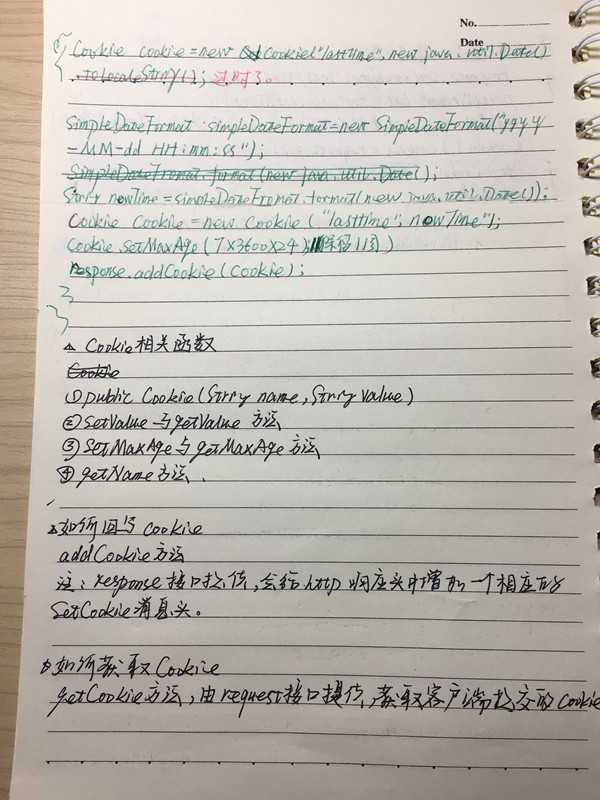 No.
Date
{ Cookie cookie=new Cookie("lasttime",new java.util.Date()
.toLocaleString(); 过时了。
SimpleDateFormat simpleDateFormat=new SimpleDateFormat("yyyy
-MM-dd HH:mm:ss");
SimpleDateFromat.format(new java.util.Date();
String nowTime=simpleDateFromat.format(new java.util.Date());
Cookie Cookie=new Cookie ("lasttime", nowTime");
Cookie.setMaxAge(7X3600X24);
response.addCookie(cookie);
}
}
Cookie相关函数
Cookie
①public Cookie(String name,String value)
②setValue与getValue 方法
③SetMaxAge与getMaxAge方法
④getName方法.
如何回写cookie
addCookie方法
注:response接口提供,会给http响应头中增加一个相应的
SetCookie消息头。
如何获取Cookie
getCookie方法,由request接口提供,获取客户端提交的Cookie